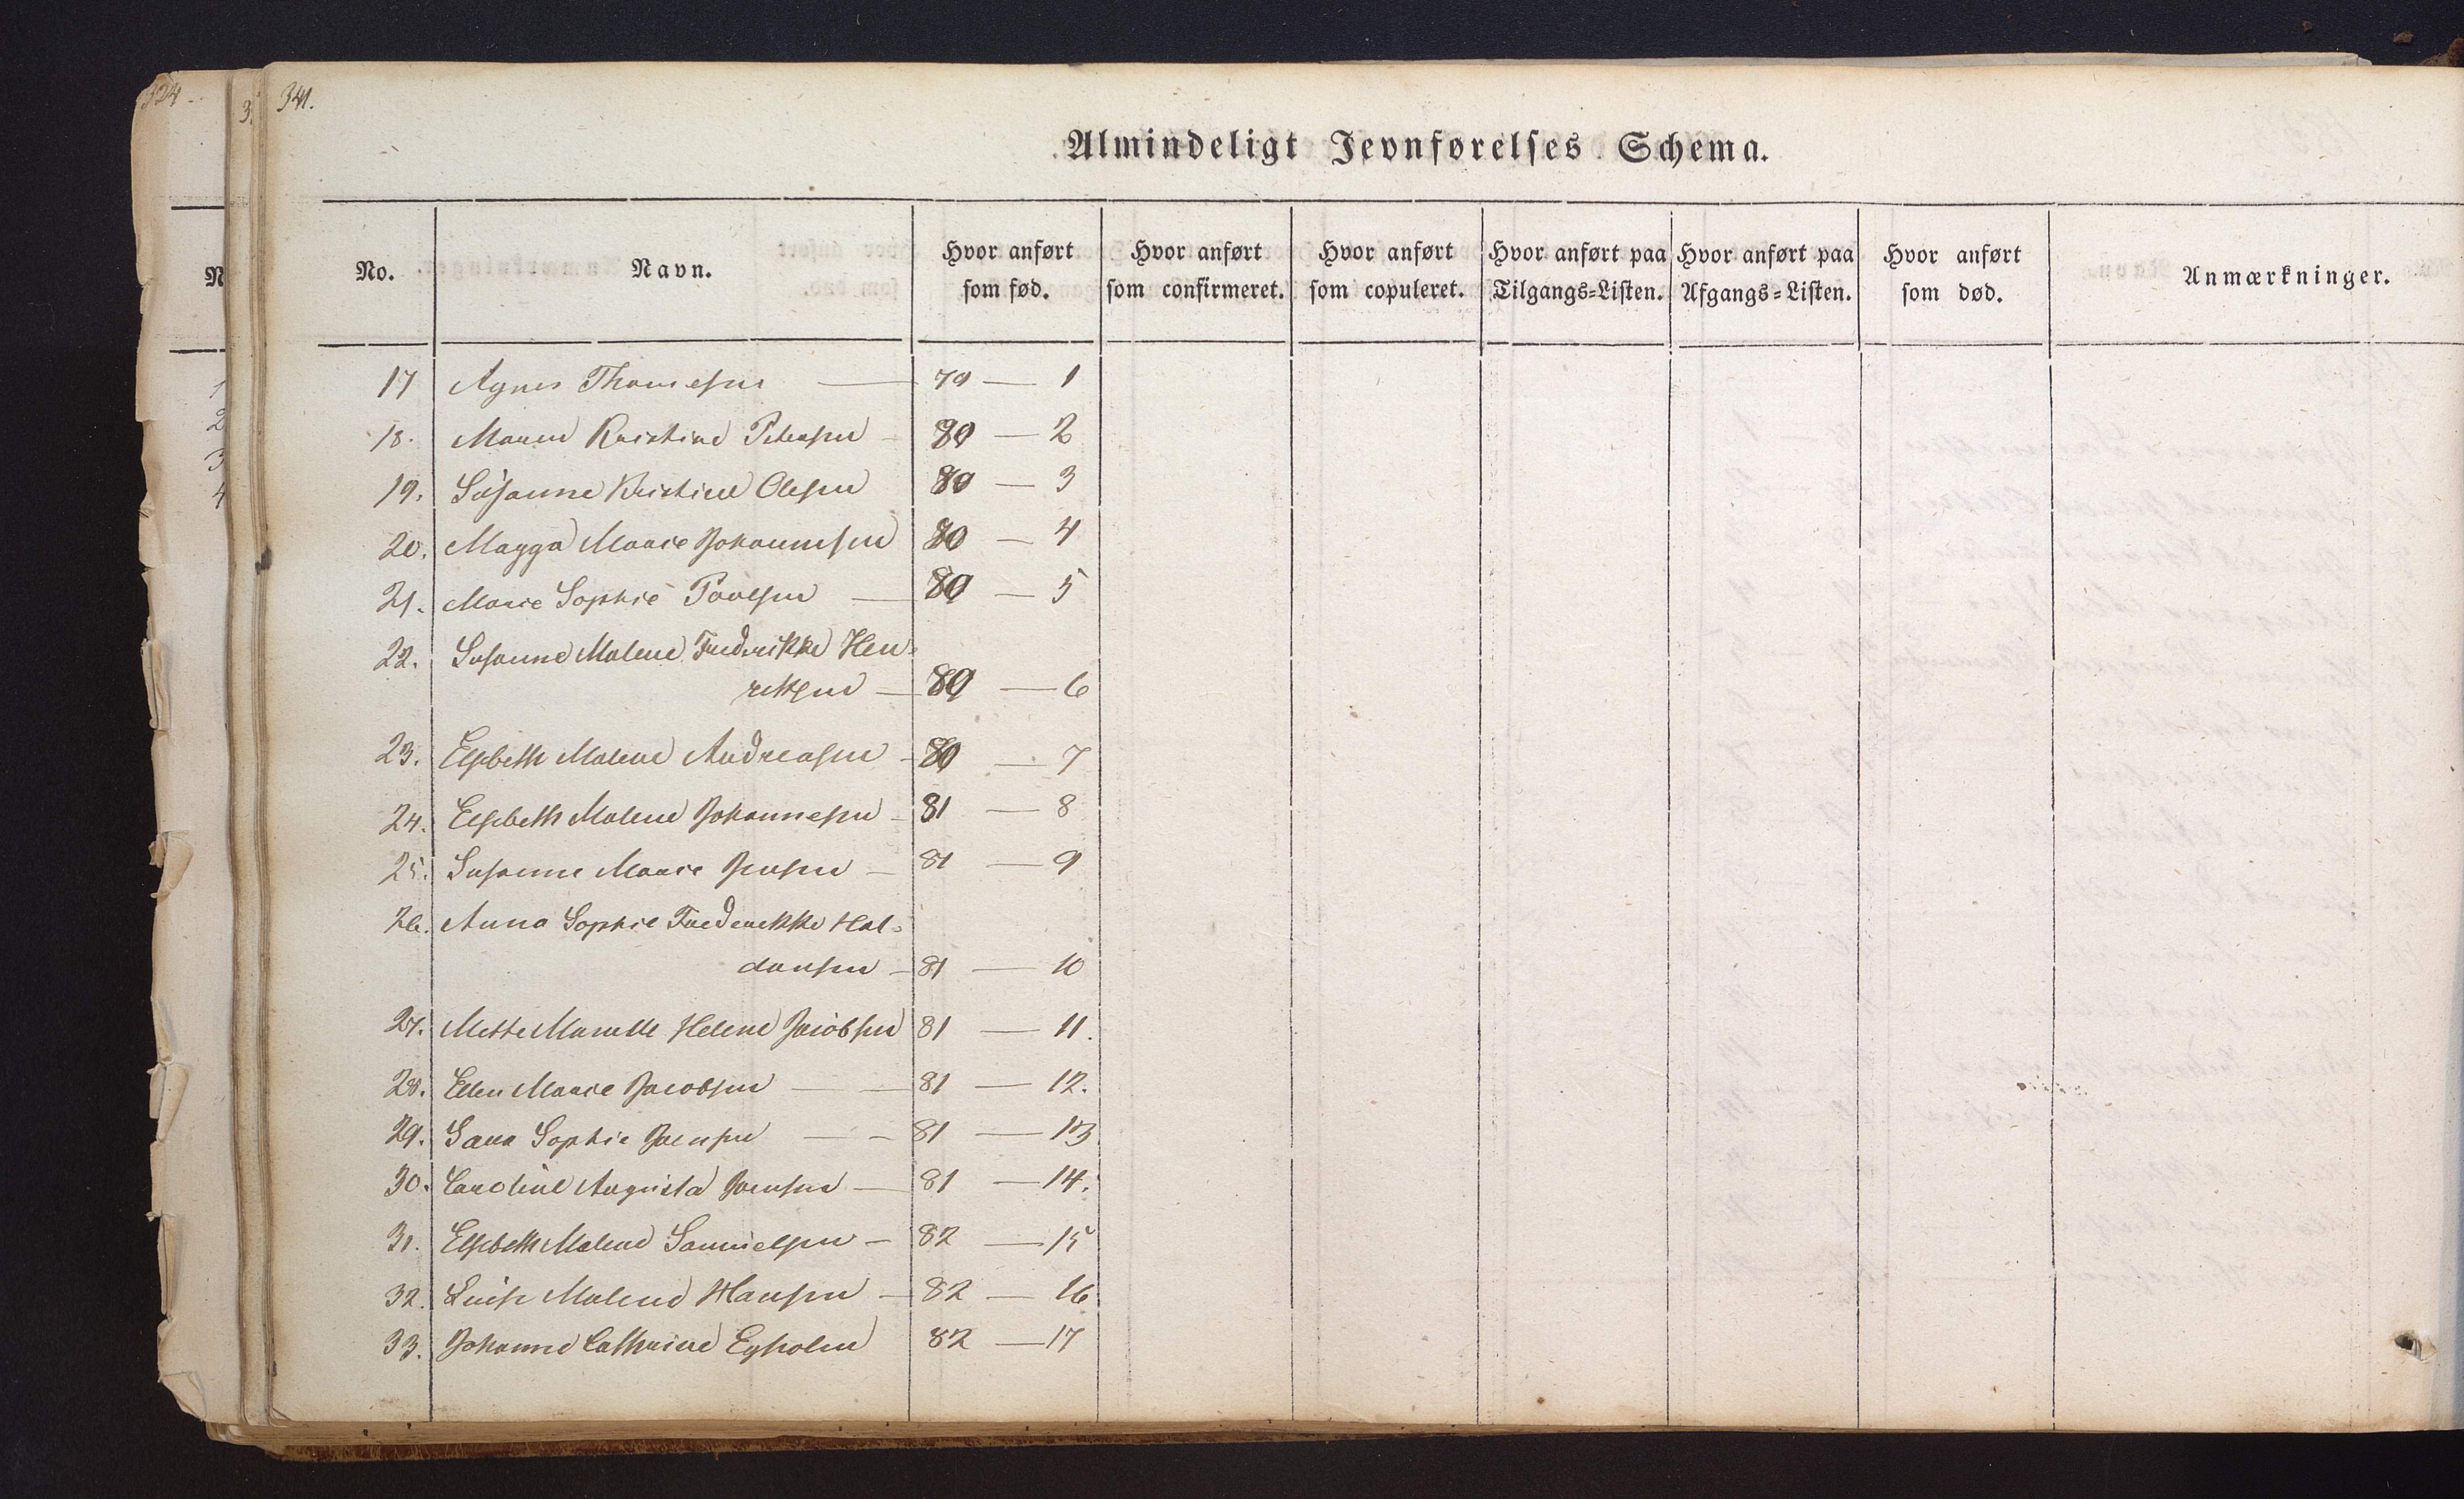 324
3
341.
Almindeligt Jevnførelses Schema.
N
No. Navn. Hvor anført som fød. Hvor anført som confirmeret. Hvor anført som copuleret. Hvor anført paa Tilgangs=Listen. Hvor anført paa Afgangs=Listen. Hvor anført som død. Anmærkninger.
17 Agnes Thomesen — 79 — 1
18. Maren Kristine Petersen — 80 — 2
19. Susanne Kristine Olesen 80 — 3
20. Magga Marie Johannesen 80 — 4
21. Marie Sophie Poulsen — 80 — 5
22. Susanne Malene Frederikke Hen=
riksen — 80 — 6
23. Elsebeth Malene Andreasen — 80 — 7
24. Elsebeth Malene Johannesen — 81 — 8
25. Susanne Marie Joensen — 81 — 9
26. Anna Sophie Frederikke Hal=
dansen — 81 — 10
27. Mette Helene Jacobsen 81 — 11.
28. Ellen Marie Jacobsen — 81 — 12.
29. Sanna Sophie Joensen — 81 — 13
30. Caroline Augusta Joensen — 81 — 14.
31. Elsebeth Malene Samuelsen — 82 — 15
32. Luise Malene Hansen — 82 — 16
33. Johanne Cathrine Egholm 82 — 17
1
2
3
4